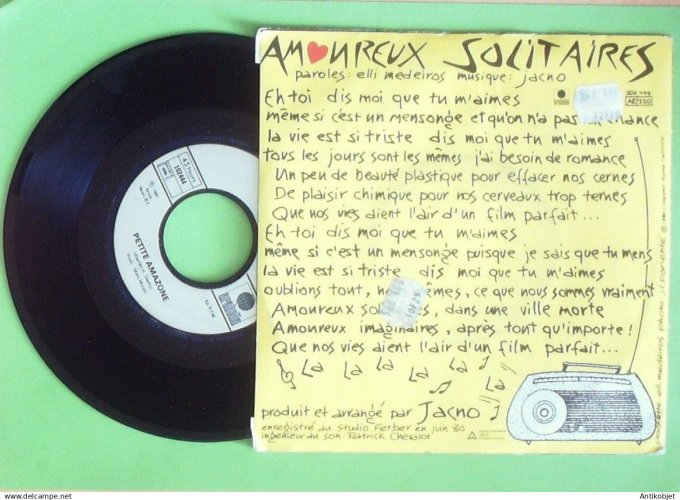 AMOUREUX SOLITAIRES
paroles: elli medeiros musique: jacno
Eh toi dis moi que tu m'aimes
même si c'est un mensonge et qu'on n'a pas
la vie est si triste dis moi que tu m'aimes
tous les jours sont les mêmes j'ai besoin de romance
Un peu de beauté plastique pour effacer nos cernes
De plaisir chimique pour nos cerveaux trop ternes
Que nos vies aient l'air d'un film parfait...
Eh toi dis moi que tu m'aimes
même si c'est un mensonge puisque je sais que tu mens
la vie est si triste dis moi que tu m'aimes
oublions tout, ce que nous sommes vraiment
Amoureux dans une ville morte
Amoureux imaginaires, après tout qu'importe!
Que nos vies aient l'air d'un film parfait...
La La La La La La
produit et arrangé par Jacno
enregistré au studio Ferber en juin 80
ingénieur du son: Patrick Chevalot
AE 110
45 tours
102444
PETITE AMAZONE
ariola
© Antikobjet